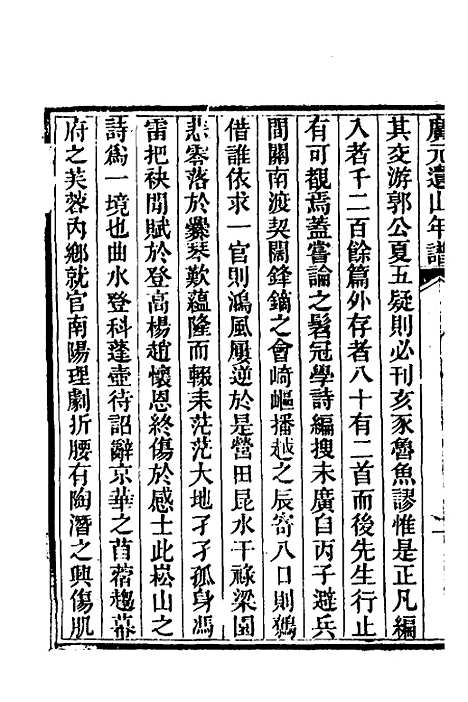 廣元遺山年譜
其交游郭公夏五疑則必刊亥豕魯魚謬惟是正凡編
入者千二百餘篇外存者八十有二首而後先生行止
有可觀焉蓋嘗論之髫冠學詩編搜未廣自丙子避兵
間關南渡契闊鋒鏑之會崎嶇播越之辰寄八口則鷦
借誰依求一官則鴻風屢逆於是營田昆水干祿梁園
悲零落於爨琴歎蘊隆而輟耒茫茫大地孑孑孤身馮
雷把袂閒賦於登高楊趙懷恩終傷於感士此崧山之
詩爲一境也曲水登科蓬壺待詔辭京華之苜蓿趨幕
府之芙蓉內鄉就官南陽理劇折腰有陶潛之興傷肌